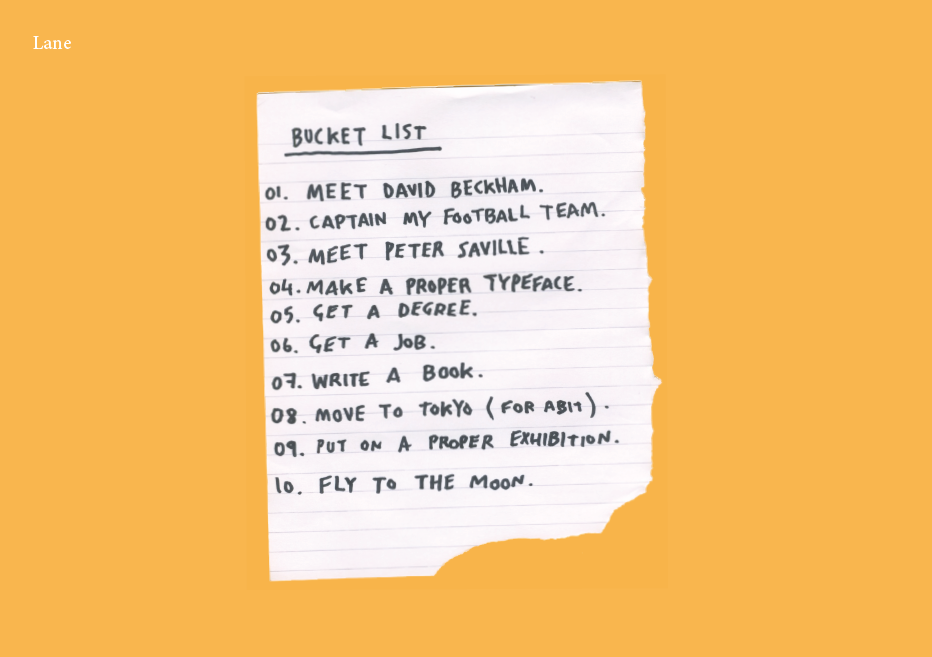 Lane
BUCKET LIST
01. MEET DAVID BECKHAM.
02. CAPTAIN MY FOOTBALL TEAM.
03. MEET PETER SAVILLE.
04. MAKE A PROPER TYPEFACE.
05. GET A DEGREE.
06. GET A JOB.
07. WRITE A BOOK.
08. MOVE TO TOKYO (FOR ABIT).
09. PUT ON A PROPER EXHIBITION.
10. FLY TO THE MOON.